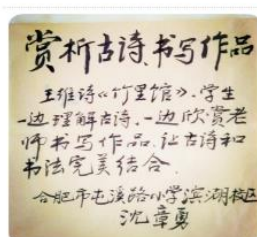 赏析古诗、书写作品
王维诗《竹里馆》.学生
一边理解古诗.一边欣赏老
师书写作品.让古诗和
书法完美结合.
合肥市屯溪路小学滨湖校区
沈章勇